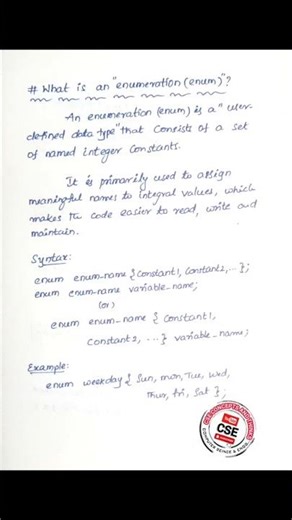 # What is an "enumeration (enum)"?
An enumeration (enum) is a "user-
defined data type" that consists of a set
of named integer constants.
It is primarily used to assign
meaningful names to integral values, which
makes the code easier to read, write and
maintain.
Syntax:
enum enum_name { Constant1, Constant2, ... };
enum enum_name variable_name;
(or)
enum enum_name { Constant1,
Constant2, ... } variable_name;
Example:
enum weekday { Sun, mon, Tue, Wed,
Thur, fri, Sat };
CSE